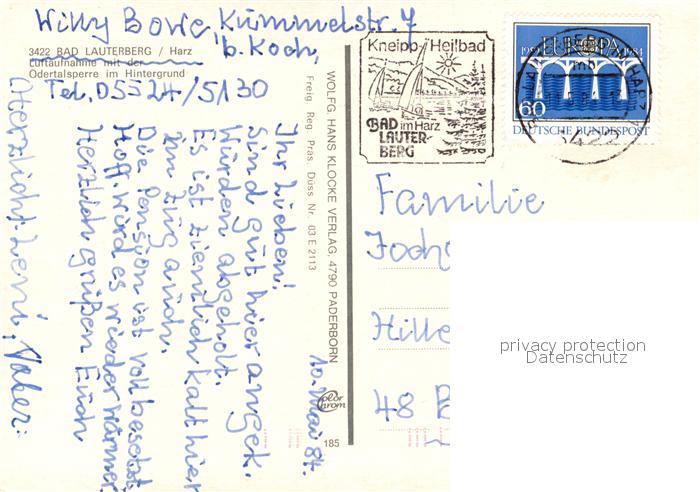 Willy Bowe, Kümmelstr. 7
b. Koch,
3422 BAD LAUTERBERG / Harz
Luftaufnahme mit der
Odertalsperre im Hintergrund
Tel. 05524/5130
10. Mai 84.
Ihr Lieben!
Sind gut hier angek.
Würden abgeholt.
Es ist ziemlich kalt hier
im Zug auch.
Die Pension ist voll besetzt.
Hoff. wird es wieder wärmer.
Herzlich grüßen Euch
Herzlichst Leni,
WOLFG. HANS KLOCKE VERLAG, 4790 PADERBORN
Freig. Reg. Präs. Düss. Nr. 03 E 2113
Color Chrom
185
Kneipp-Heilbad
BAD im Harz
LAUTER-
BERG
EUROPA
1984
60
DEUTSCHE BUNDESPOST
3422
Familie
Joch
Hille
48 B
privacy protection
Datenschutz